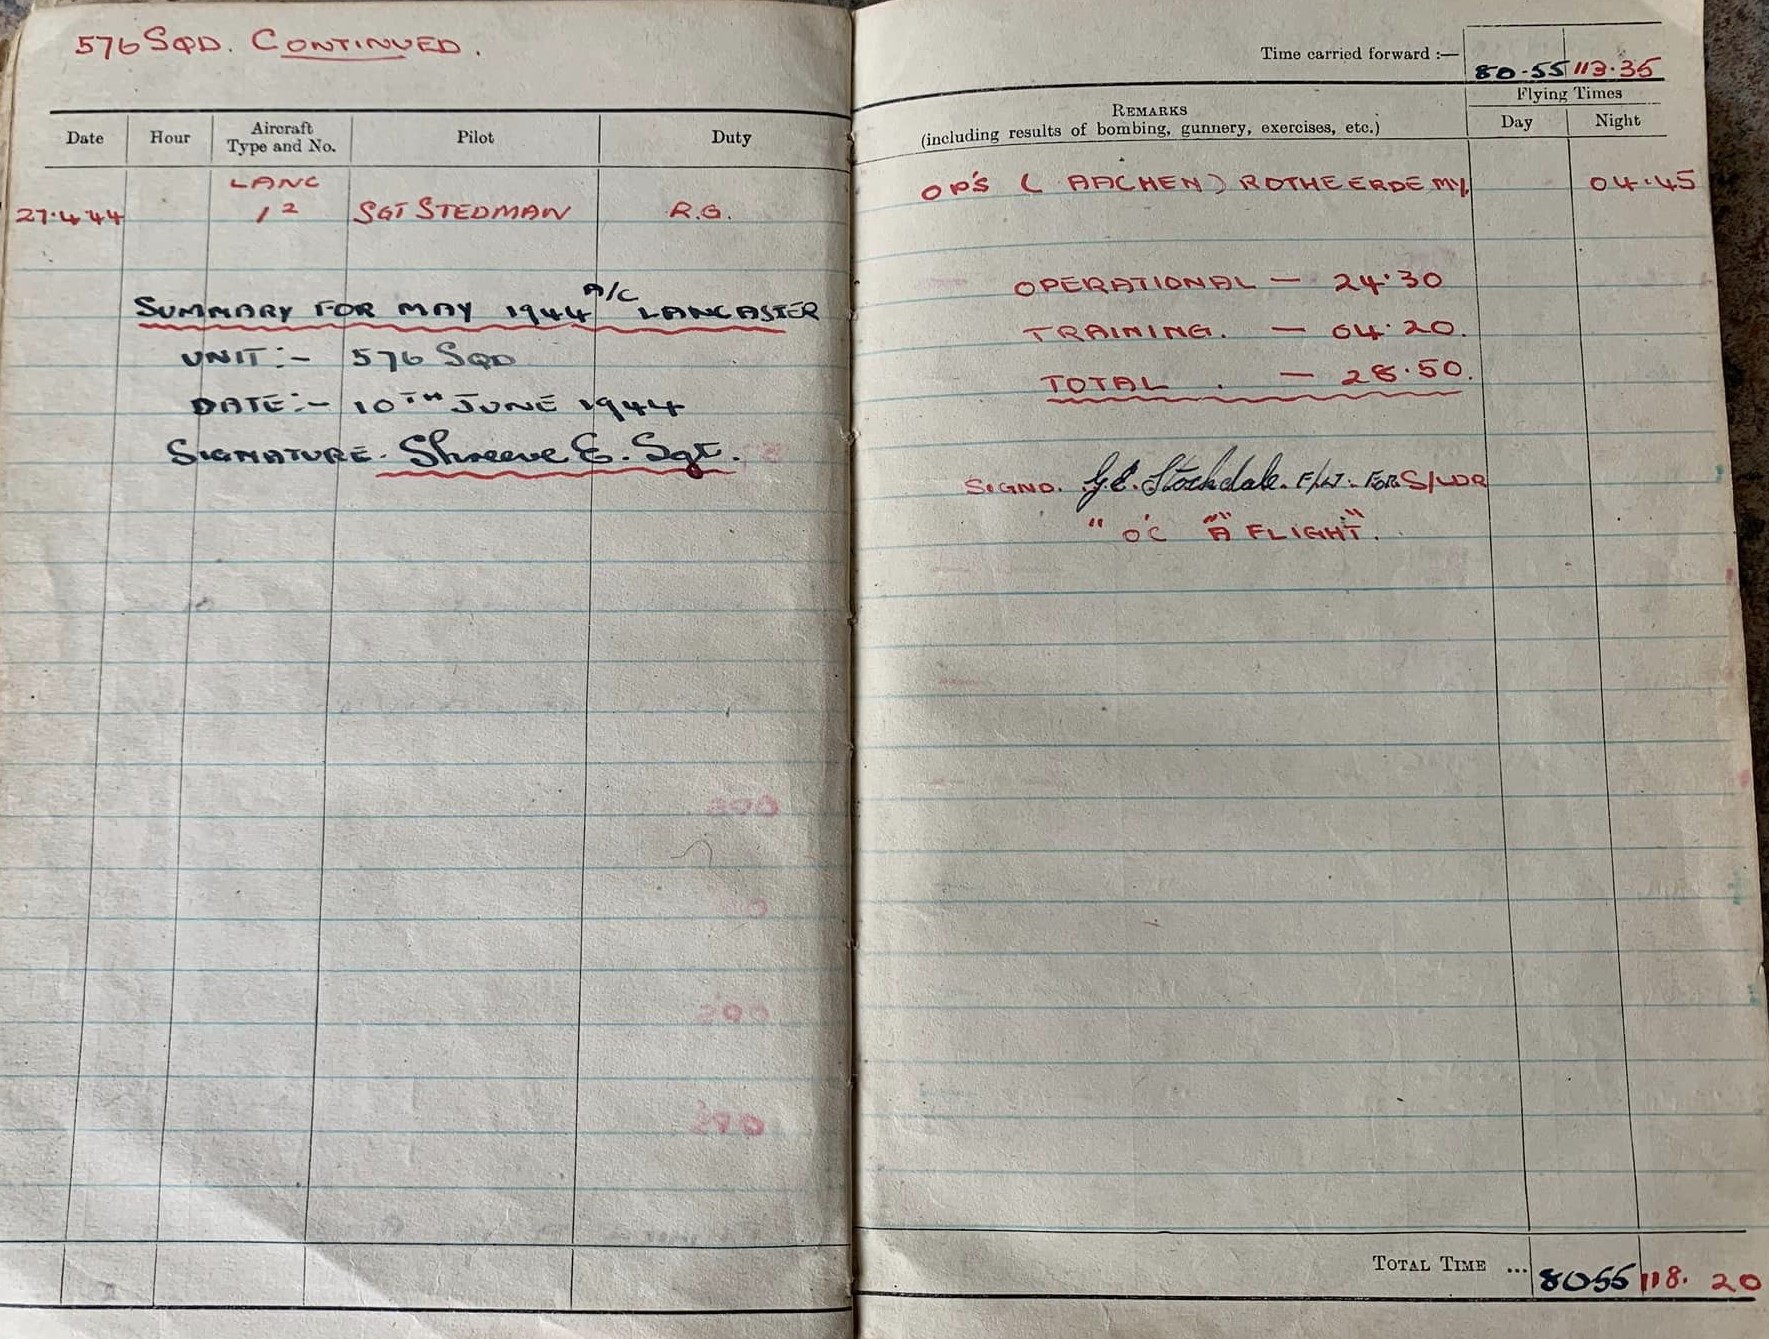 576 SQD. CONTINUED.
Date Hour Aircraft Type and No. Pilot Duty
LANC
27.4.44 1² SGT STEDMAN R.G.
SUMMARY FOR MAY 1944 A/C LANCASTER
UNIT:- 576 SQD
DATE:- 10TH JUNE 1944
SIGNATURE. Shreeve E. Sgt.
Time carried forward :— 80-55 113.35
REMARKS
(including results of bombing, gunnery, exercises, etc.)
Flying Times
Day Night
OP'S ( AACHEN) ROTHE ERDE M/Y. 04.45
OPERATIONAL — 24.30
TRAINING. — 04.20.
TOTAL . — 28.50.
SIGND. G.E. Stockdale. F/LT. FOR S/LDR
" O'C "A" FLIGHT".
TOTAL TIME ... 80.55 118.20